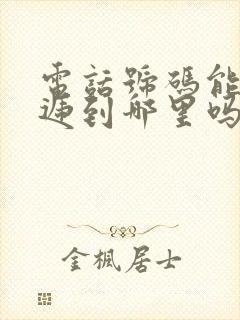 電話號碼能
遞到哪里嗎
金楓居士